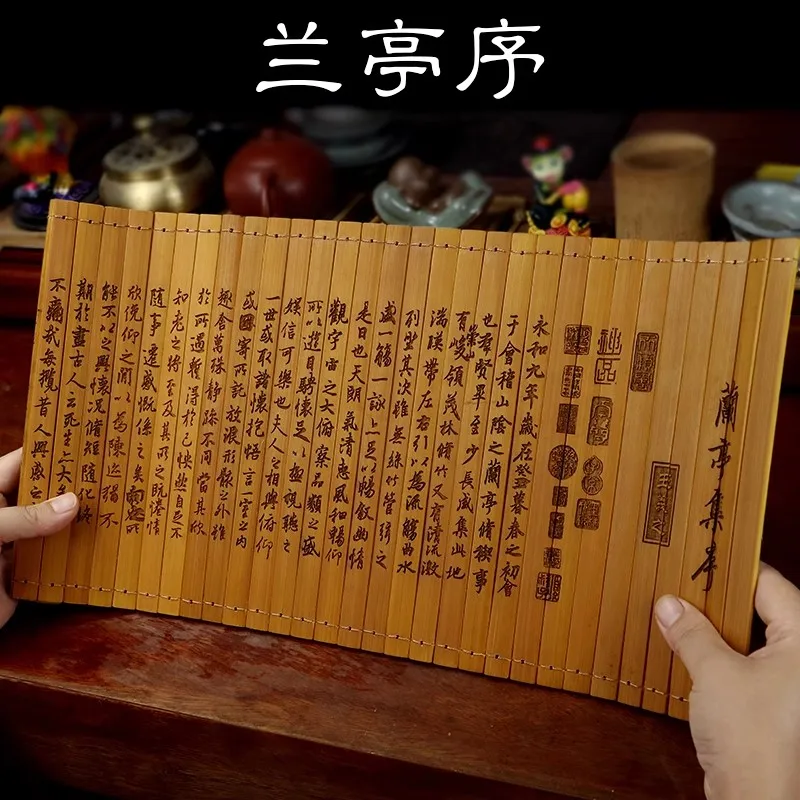 兰亭序
蘭亭集序
永和九年歲在癸丑暮春之初會
于會稽山陰之蘭亭脩稧事
也羣賢畢至少長咸集此地
有崇山峻領茂林脩竹又有清流激
湍暎帶左右引以為流觴曲水
列坐其次雖無絲竹管弦之
盛一觴一詠上足以暢叙幽情
是日也天朗氣清惠風和暢仰
觀宇宙之大俯察品類之盛
所以遊目騁懷足以極視聽之
娛信可樂也夫人之相與俯仰
一世或取諸懷抱悟言一室之內
或因寄所託放浪形骸之外雖
趣舍萬殊靜躁不同當其欣
於所遇暫得於己怏然自足不
知老之將至及其所之既惓情
隨事遷感慨係之矣向之所
欣俛仰之閒以為陳迹猶不
能不以之興懷況脩短隨化終
期於盡古人云死生亦大矣
不痛哉每攬昔人興感之